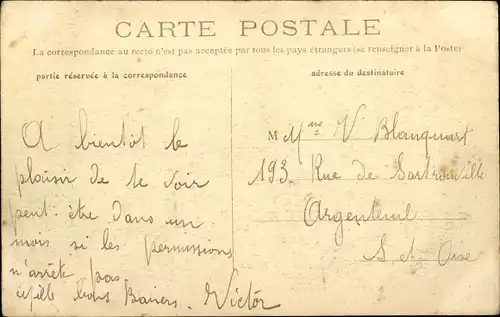 CARTE POSTALE
La correspondance au recto n'est pas acceptée par tous les pays étrangers (se renseigner à la Poste)
partie réservée à la correspondance
adresse du destinataire
A bientôt le
plaisir de te voir
peut être dans un
mois si les permissions
n'arrête pas
Baisers. Victor
M Mme V Blanquart
193 Rue de Sartrouville
Argenteuil
S. et. Oise